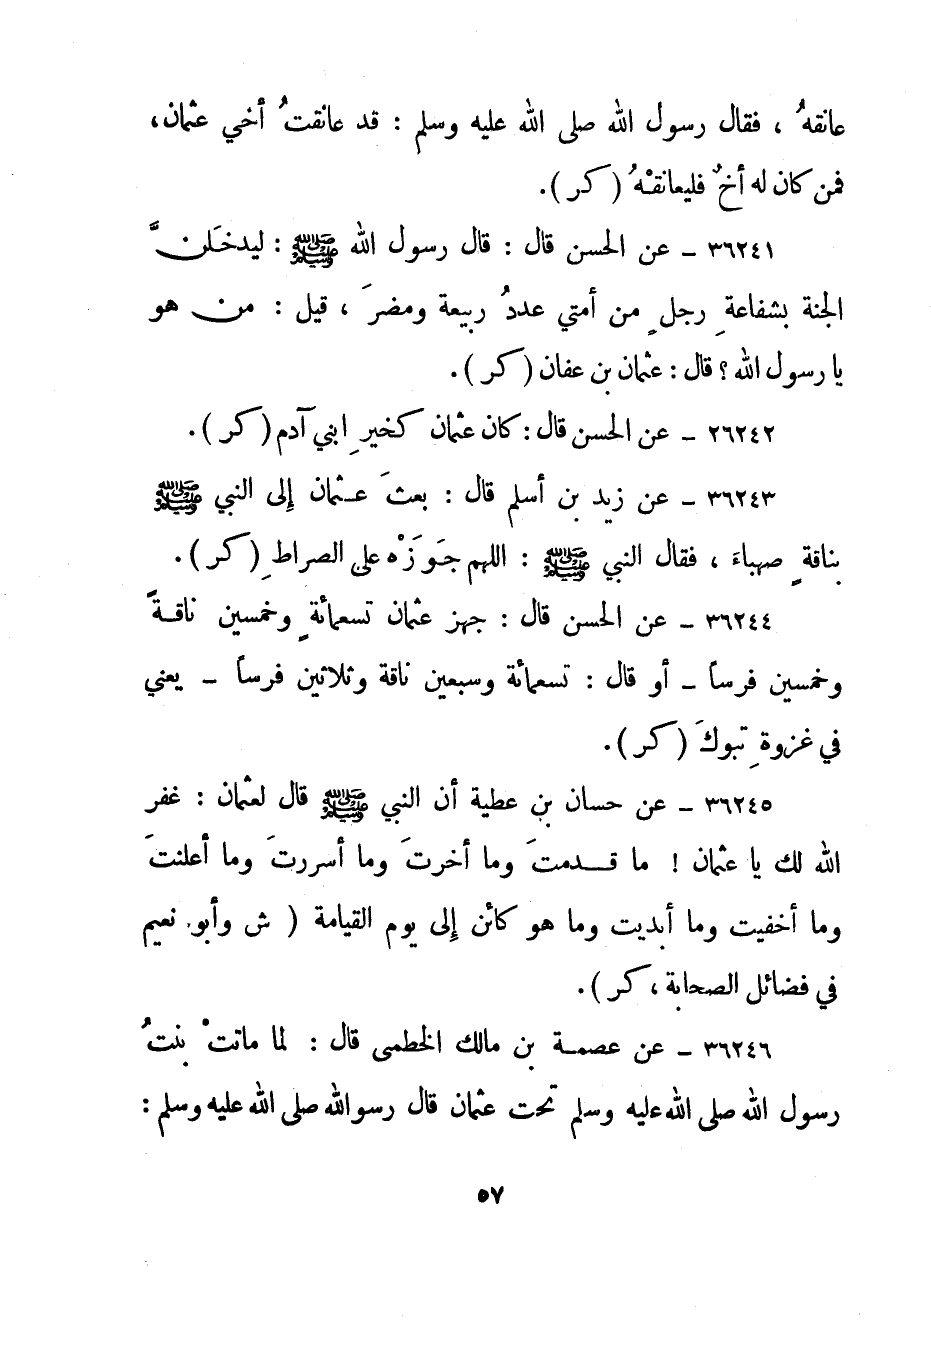 عانقهُ ، فقال رسول الله صلى الله عليه وسلم : قد عانقتُ أخي عثمان،
فمن كان له أخٌ فليعانقْهُ ( كر ).
٣٦٢٤١ ـ عن الحسن قال : قال رسول الله ﷺ : ليدخلَنَّ
الجنة بشفاعةِ رجلٍ من أمتي عددُ ربيعة ومضرَ ، قيل : من هو
يا رسول الله ؟ قال : عثمان بن عفان ( كر ).
٢٦٢٤٢ ـ عن الحسن قال : كان عثمان كخيرِ ابني آدم ( كر ).
٣٦٢٤٣ ـ عن زيد بن أسلم قال : بعثَ عثمان إلى النبي ﷺ
بناقةٍ صهباءَ ، فقال النبي ﷺ : اللهم جَوِّزْه على الصراطِ ( كر ).
٣٦٢٤٤ ـ عن الحسن قال : جهز عثمان تسعمائةٍ وخمسين ناقةً
وخمسين فرساً ـ أو قال : تسعمائة وسبعين ناقة وثلاثين فرساً ـ يعني
في غزوةِ تبوكَ ( كر ).
٣٦٢٤٥ ـ عن حسان بن عطية أن النبي ﷺ قال لعثمان : غفر
الله لك يا عثمان ! ما قدمتَ وما أخرتَ وما أسررتَ وما أعلنتَ
وما أخفيت وما أبديت وما هو كائن إلى يوم القيامة ( ش وأبو نعيم
في فضائل الصحابة ، كر ).
٣٦٢٤٦ ـ عن عصمة بن مالك الخطمى قال : لما ماتتْ بنتُ
رسول الله صلى الله عليه وسلم تحت عثمان قال رسو الله صلى الله عليه وسلم :
٥٧